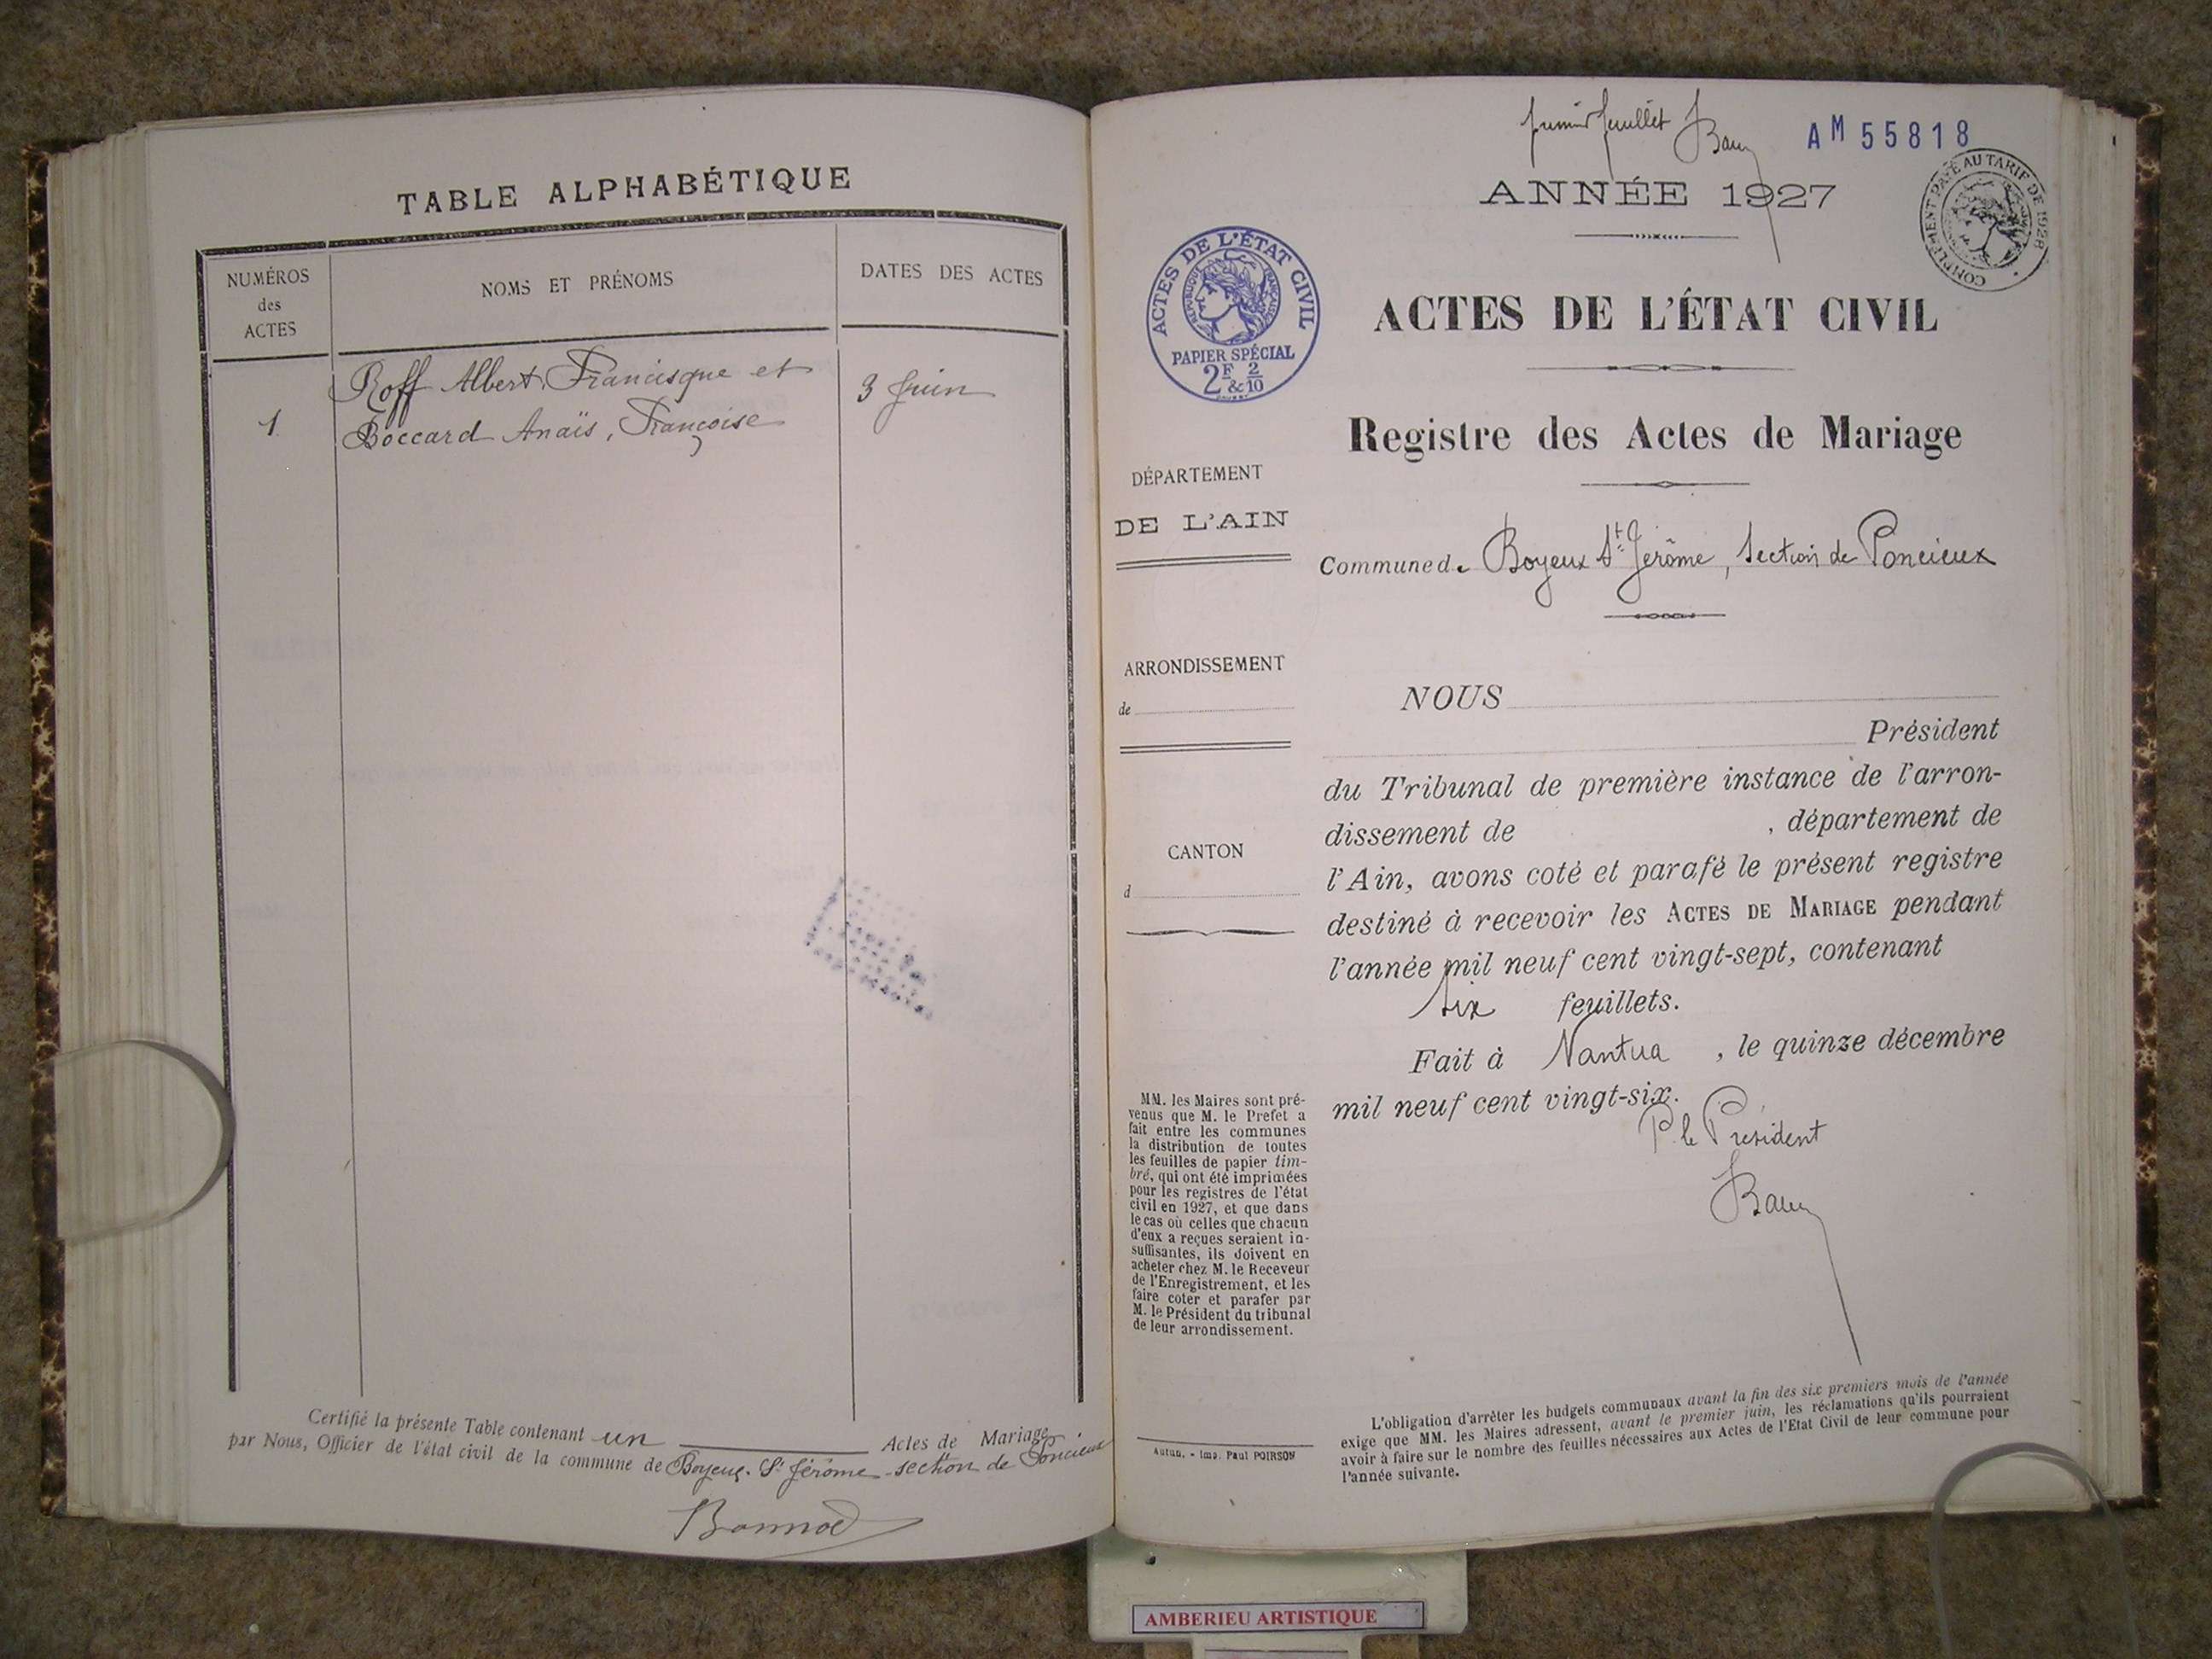 TABLE ALPHABÉTIQUE
NUMÉROS
des
ACTES
NOMS ET PRÉNOMS
DATES DES ACTES
1
Roff Albert, Francisque et
Boccard Anaïs, Françoise
3 Juin
Certifié la présente Table contenant un Actes de Mariage
par Nous, Officier de l'état civil de la commune de Boyeux-St Jérôme - section de Poncieux
Bonnod
premier feuillet
AM 55818
ANNÉE 1927
COMPLÉMENT PAYÉ AU TARIF DE 1926
ACTES DE L'ÉTAT CIVIL
RÉPUBLIQUE FRANÇAISE
PAPIER SPÉCIAL
2F & 2/10
ACTES DE L'ÉTAT CIVIL
Registre des Actes de Mariage
DÉPARTEMENT
DE L'AIN
Commune de Boyeux St Jérôme, Section de Poncieux
ARRONDISSEMENT
de
CANTON
d
NOUS
Président
du Tribunal de première instance de l'arron-
dissement de , département de
l'Ain, avons coté et parafé le présent registre
destiné à recevoir les ACTES DE MARIAGE pendant
l'année mil neuf cent vingt-sept, contenant
six feuillets.
Fait à Nantua , le quinze décembre
mil neuf cent vingt-six.
P. le Président
MM. les Maires sont pré-
venus que M. le Prefet a
fait entre les communes
la distribution de toutes
les feuilles de papier tim-
bré, qui ont été imprimées
pour les registres de l'état
civil en 1927, et que dans
le cas où celles que chacun
d'eux a reçues seraient in-
suffisantes, ils doivent en
acheter chez M. le Receveur
de l'Enregistrement, et les
faire coter et parafer par
M. le Président du tribunal
de leur arrondissement.
Autun. - Imp. Paul POIRSON
L'obligation d'arrêter les budgets communaux avant la fin des six premiers mois de l'année
exige que MM. les Maires adressent, avant le premier juin, les réclamations qu'ils pourraient
avoir à faire sur le nombre des feuilles nécessaires aux Actes de l'Etat Civil de leur commune pour
l'année suivante.
AMBERIEU ARTISTIQUE